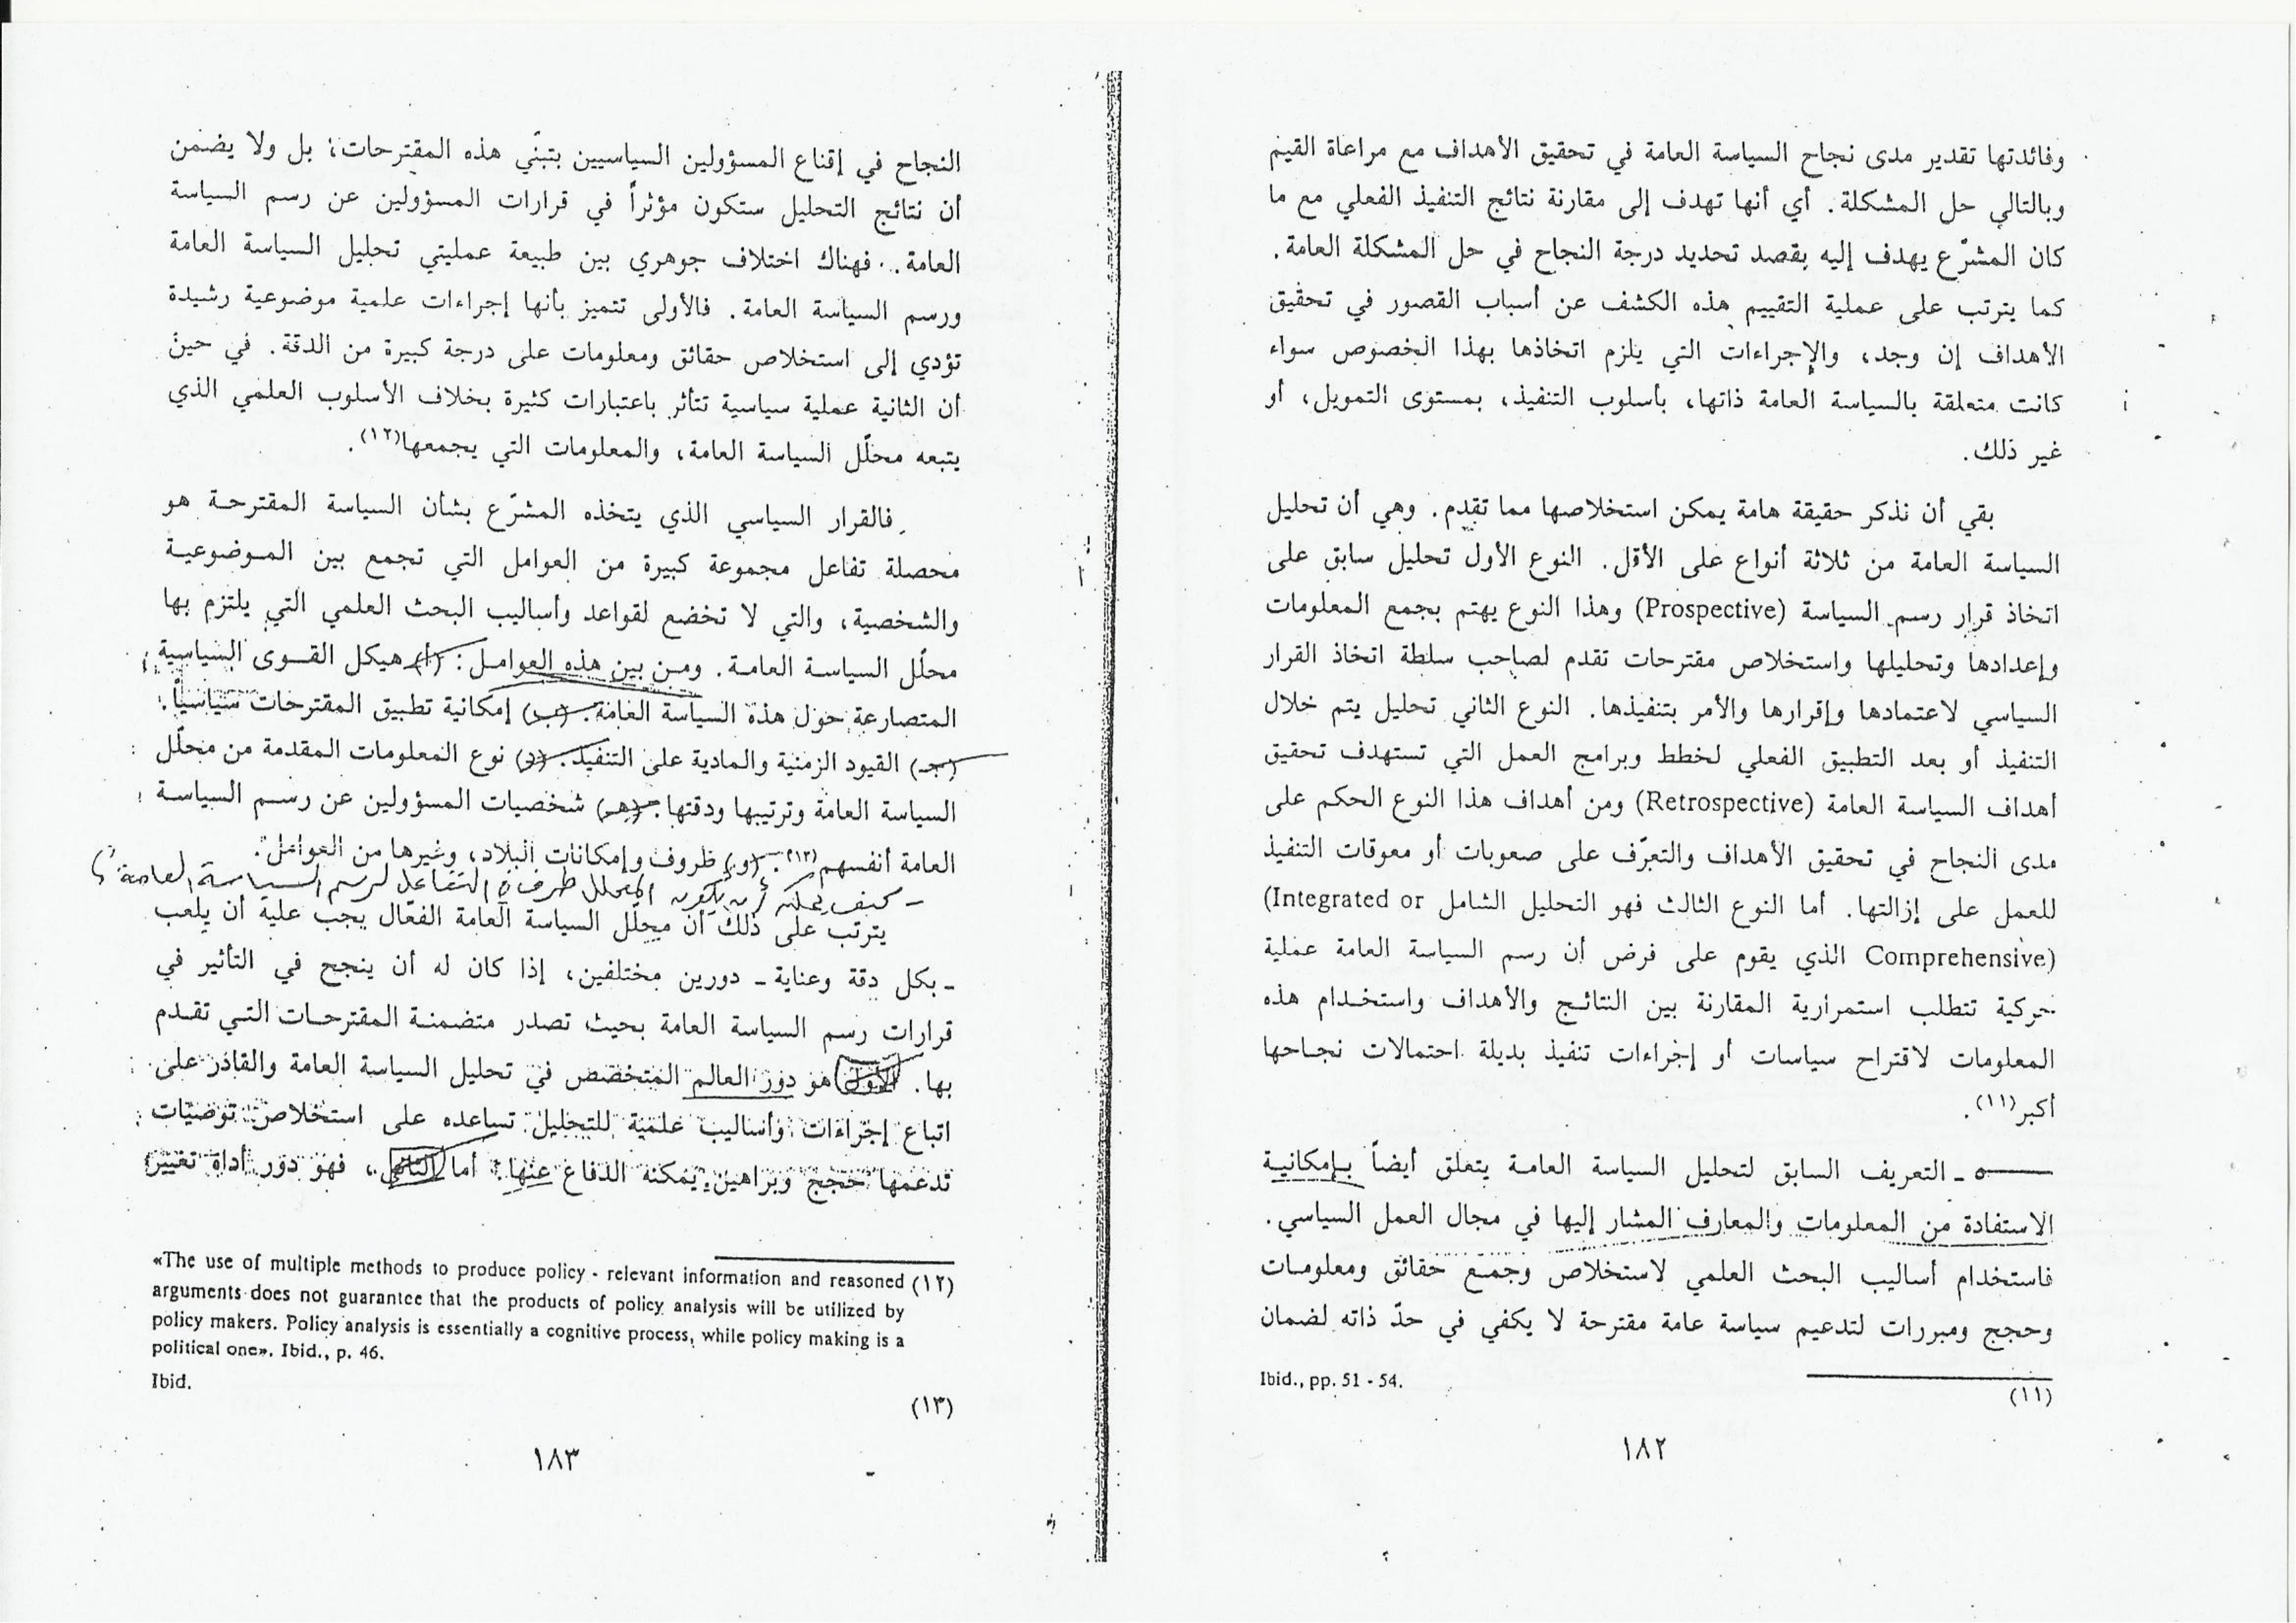 وفائدتها تقدير مدى نجاح السياسة العامة في تحقيق الأهداف مع مراعاة القيم
وبالتالي حل المشكلة. أي أنها تهدف إلى مقارنة نتائج التنفيذ الفعلي مع ما
كان المشرّع يهدف إليه بقصد تحديد درجة النجاح في حل المشكلة العامة.
كما يترتب على عملية التقييم هذه الكشف عن أسباب القصور في تحقيق
الأهداف إن وجد، والإجراءات التي يلزم اتخاذها بهذا الخصوص سواء
كانت متعلقة بالسياسة العامة ذاتها، بأسلوب التنفيذ، بمستوى التمويل، أو
غير ذلك.
بقي أن نذكر حقيقة هامة يمكن استخلاصها مما تقدم. وهي أن تحليل
السياسة العامة من ثلاثة أنواع على الأقل. النوع الأول تحليل سابق على
اتخاذ قرار رسم السياسة (Prospective) وهذا النوع يهتم بجمع المعلومات
وإعدادها وتحليلها واستخلاص مقترحات تقدم لصاحب سلطة اتخاذ القرار
السياسي لاعتمادها وإقرارها والأمر بتنفيذها. النوع الثاني تحليل يتم خلال
التنفيذ أو بعد التطبيق الفعلي لخطط وبرامج العمل التي تستهدف تحقيق
أهداف السياسة العامة (Retrospective) ومن أهداف هذا النوع الحكم على
مدى النجاح في تحقيق الأهداف والتعرّف على صعوبات أو معوقات التنفيذ
للعمل على إزالتها. أما النوع الثالث فهو التحليل الشامل (Integrated or
Comprehensive) الذي يقوم على فرض أن رسم السياسة العامة عملية
حركية تتطلب استمرارية المقارنة بين النتائج والأهداف واستخدام هذه
المعلومات لاقتراح سياسات أو إجراءات تنفيذ بديلة احتمالات نجاحها
أكبر(١١).
٥ - التعريف السابق لتحليل السياسة العامة يتعلق أيضاً بإمكانية
الاستفادة من المعلومات والمعارف المشار إليها في مجال العمل السياسي.
فاستخدام أساليب البحث العلمي لاستخلاص وجمع حقائق ومعلومات
وحجج ومبررات لتدعيم سياسة عامة مقترحة لا يكفي في حدّ ذاته لضمان
(١١) Ibid., pp. 51 - 54.
١٨٢
النجاح في إقناع المسؤولين السياسيين بتبنّي هذه المقترحات؛ بل ولا يضمن
أن نتائج التحليل ستكون مؤثراً في قرارات المسؤولين عن رسم السياسة
العامة. فهناك اختلاف جوهري بين طبيعة عمليتي تحليل السياسة العامة
ورسم السياسة العامة. فالأولى تتميز بأنها إجراءات علمية موضوعية رشيدة
تؤدي إلى استخلاص حقائق ومعلومات على درجة كبيرة من الدقة. في حين
أن الثانية عملية سياسية تتأثر باعتبارات كثيرة بخلاف الأسلوب العلمي الذي
يتبعه محلّل السياسة العامة، والمعلومات التي يجمعها(١٢).
فالقرار السياسي الذي يتخذه المشرّع بشأن السياسة المقترحة هو
محصلة تفاعل مجموعة كبيرة من العوامل التي تجمع بين الموضوعية
والشخصية، والتي لا تخضع لقواعد وأساليب البحث العلمي التي يلتزم بها
محلّل السياسة العامة. ومن بين هذه العوامل: (أ) هيكل القوى السياسية
المتصارعة حول هذه السياسة العامة. (ب) إمكانية تطبيق المقترحات سياسياً.
(جـ) القيود الزمنية والمادية على التنفيذ. (د) نوع المعلومات المقدمة من محلّل
السياسة العامة وترتيبها ودقتها. (هـ) شخصيات المسؤولين عن رسم السياسة
العامة أنفسهم(١٣). (و) ظروف وإمكانات البلاد، وغيرها من العوامل.
- كيف يمكن أن يكون المحلل طرف في التفاعل لرسم السياسة العامة؟
يترتب على ذلك أن محلّل السياسة العامة الفعّال يجب عليه أن يلعب
- بكل دقة وعناية - دورين مختلفين، إذا كان له أن ينجح في التأثير في
قرارات رسم السياسة العامة بحيث تصدر متضمنة المقترحات التي تقدم
بها. الأول هو دور العالم المتخصص في تحليل السياسة العامة والقادر على
اتباع إجراءات وأساليب علمية للتحليل تساعده على استخلاص توصيات
تدعمها حجج وبراهين يمكنه الدفاع عنها. أما الثاني، فهو دور أداة تغيير
(١٢) «The use of multiple methods to produce policy - relevant information and reasoned
arguments does not guarantee that the products of policy analysis will be utilized by
policy makers. Policy analysis is essentially a cognitive process, while policy making is a
political one». Ibid., p. 46.
Ibid.
(١٣)
١٨٣